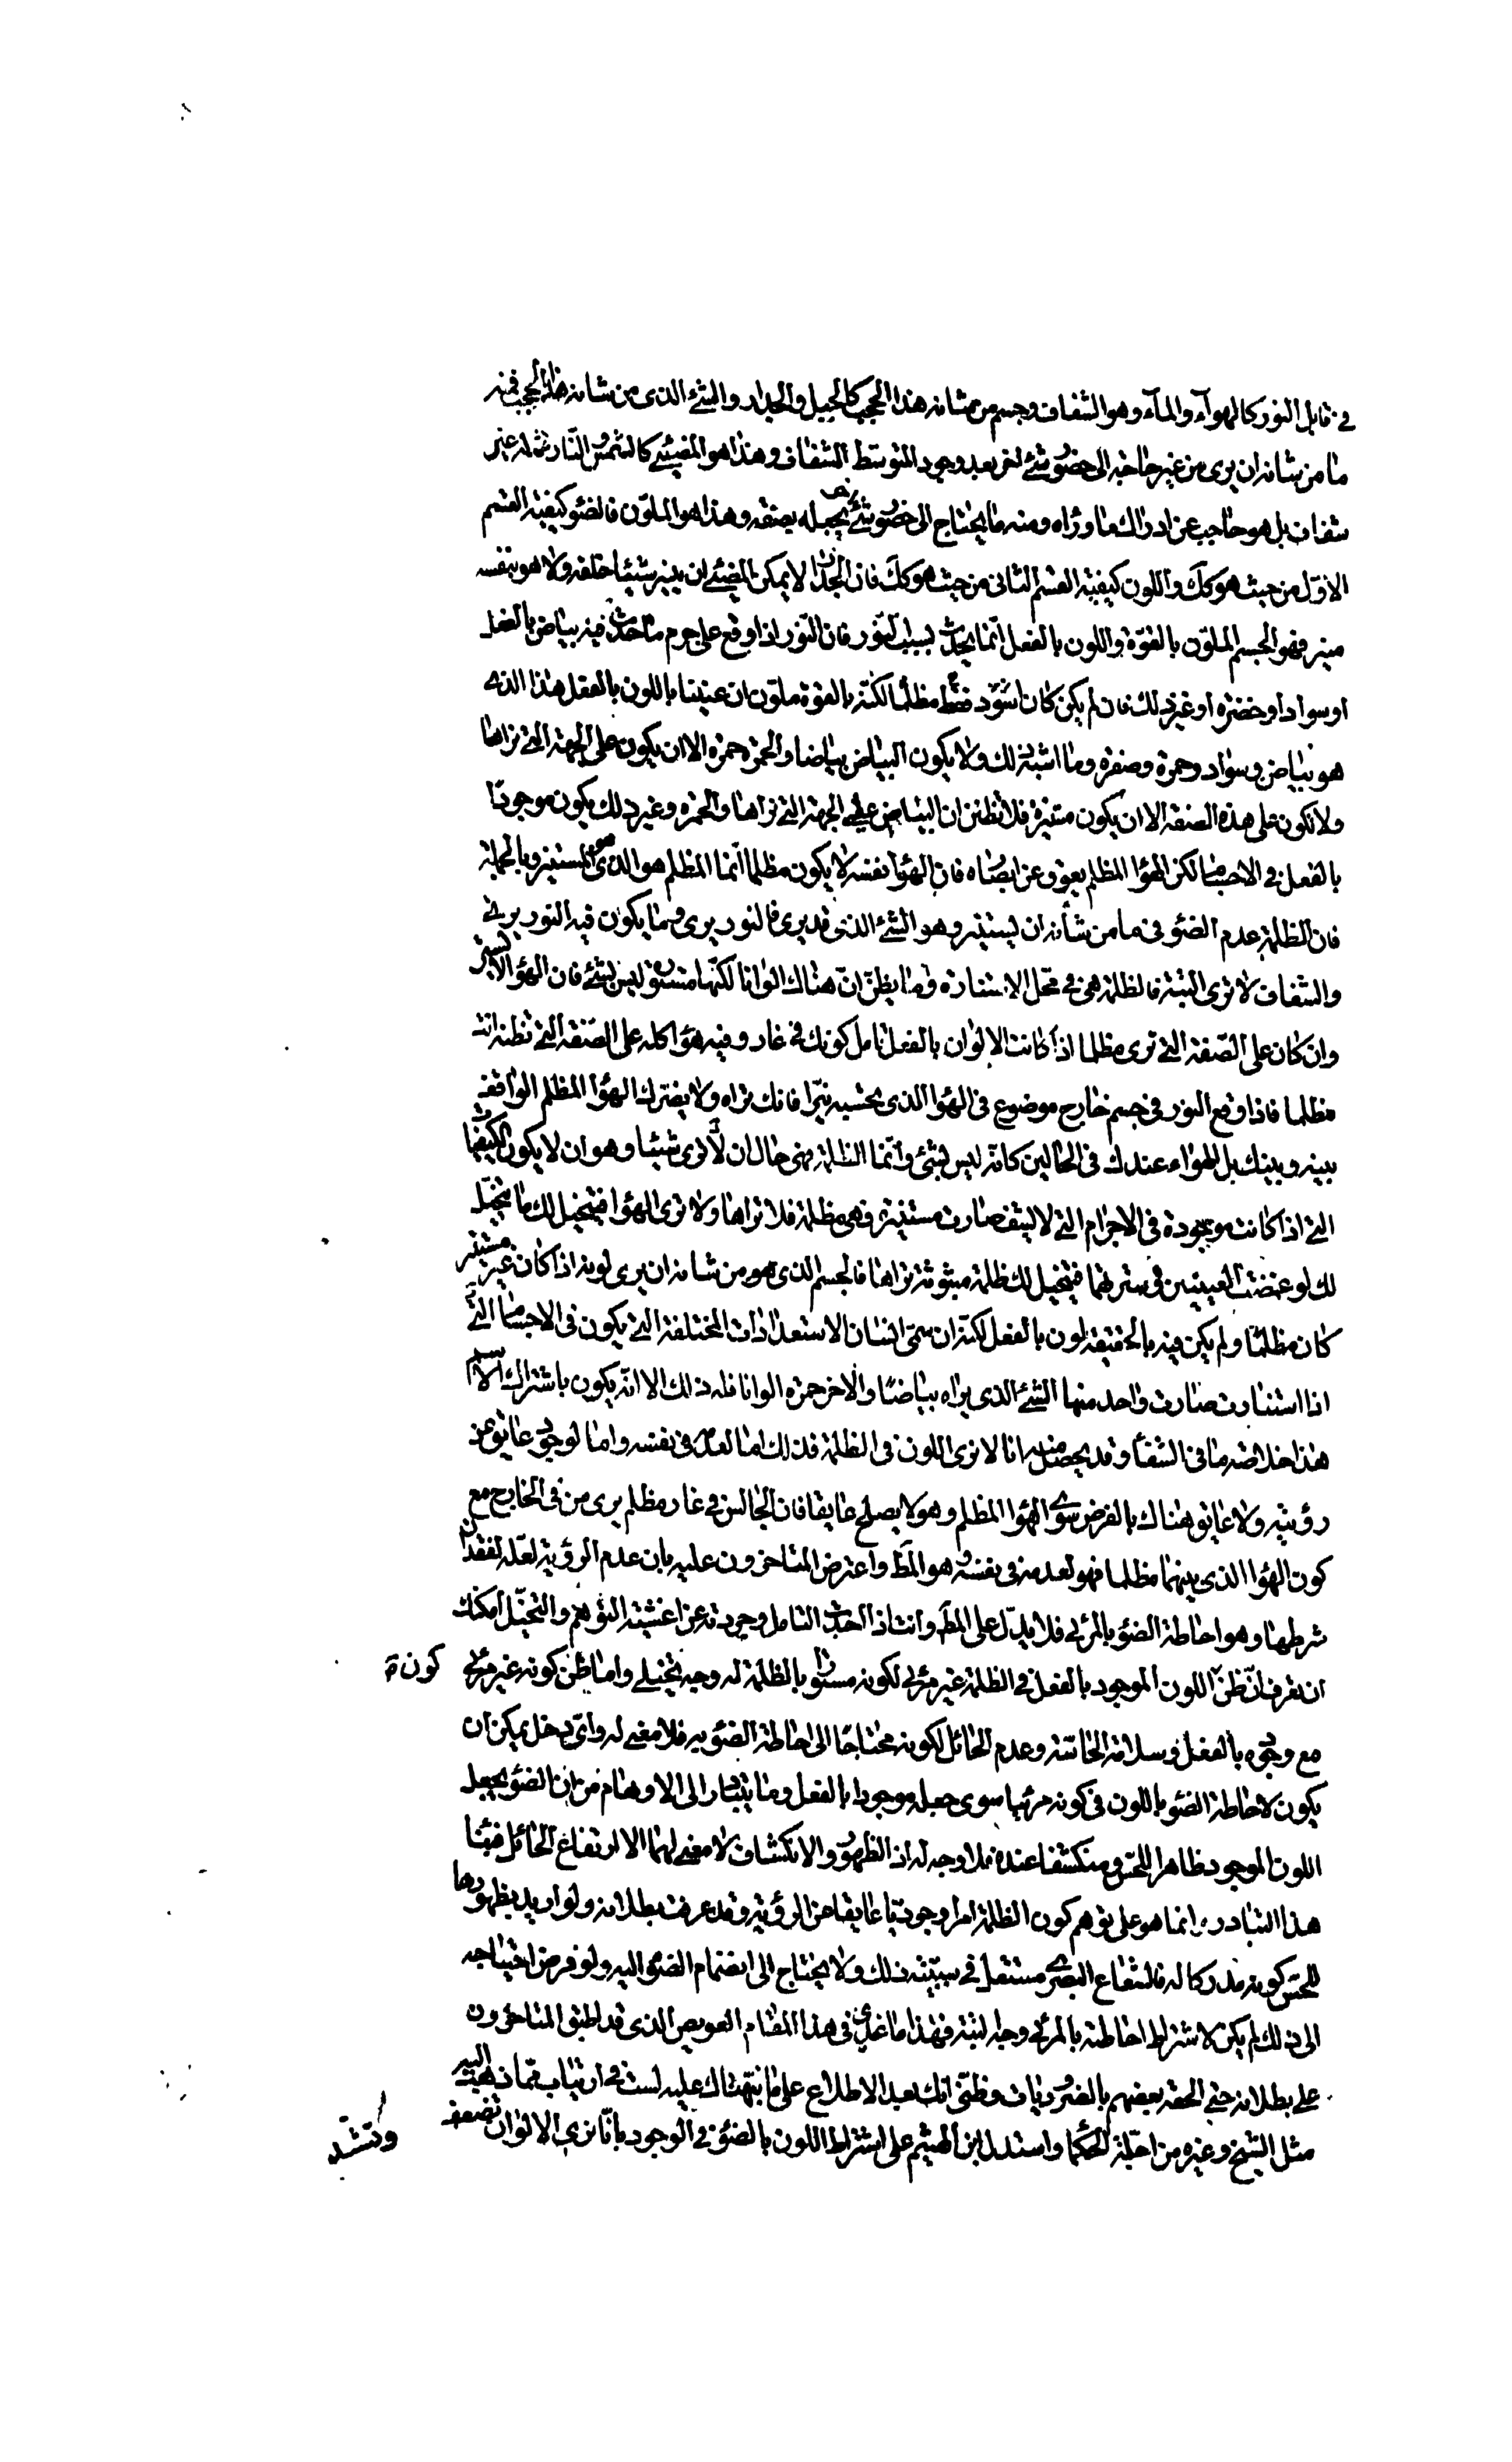 في قابل النور كالهوآء والمآء وهو الشفاف وجسم من شانه هذا الحجب كالجبل والجدار والشئ الذى من شانه هذا الحجب فمنه
ما من شانه ان يرى من غير حاجة الى حضور شئ اخر بعد وجود المتوسط الشفاف وهذا هو المضيئ كالشمس والنار ومثله غير
شفاف بل هو حاجب عن ادراك ما وراه ومنه ما يحتاج الى حضور شئ يجعله بصفة وهذا هو الملوّن فالضوء كيفية القسم
الاوّل من حيث هو كك واللون كيفية القسم الثانى من حيث هو كك فان الجدار لا يمكن المضيئ ان ينير شيئا خلفه ولا هو بنفسه
منير فهو الجسم الملوّن بالقوّة واللون بالفعل انّما يحدث بسبب النّور فان النّور اذا وقع على جرم ما حدث فيه بياض بالفعل
او سواد او خضرة او غير ذلك فان لم يكن كان اسود فقط مظلما لكنّه بالقوة ملون ان عنينا باللون بالفعل هذا الذى
هو بياض وسواد وحمرة وصفرة وما اشبه ذلك ولا يكون البياض بياضا والحمرة حمرة الا ان يكون على الجهة التى نراها
ولا تكون على هذه الصفة الا ان يكون مستنيرة فلا تظنن ان البياض على الجهة التى نراها والحمرة وغير ذلك يكون موجودا
بالفعل فى الاجسام لكن الهواء المظلم يعوق عن ابصاره فان الهواء نفسه لا يكون مظلما انّما المظلم هو الذى هو المستنير وبالجملة
فان الظلمة عدم الضوء فى ما من شأنه ان يستنير وهو الشئ الذى قد يرى فالنور يرى وما يكون فيه النور يرى
والشفاف لا يرى البتة فالظلمة هى فى محل الاستنارة وما يظنّ انّ هناك الوانا لكنّها مستورة ليس بشئ فان الهواء لا يستر
وان كان على الصّفة التى ترى مظلما اذا كانت الالوان بالفعل تامل كونك فى غار وفيه هواء كله على الصّفة التى تظنه انه
مظلما فاذا وقع النور فى جسم خارج موضوع فى الهواء الذى تحسبه نيّرا فانك تراه ولا يضرك الهواء المظلم الواقف
بينه وبينك بل الهواء عندك فى الحالين كانه ليس بشئ وانّما الظلمة فهى حال ان لا ترى شيئا وهو ان لا يكون الكيفيات
التى اذا كانت موجودة فى الاجرام التى لا يشف صارت مستنيرة فهى مظلمة فلا تراها ولا ترى الهواء فيتخيل لك ما يتخيّل
لك لو غمضت العينين وسترتهما فيتخيل لك ظلمة مبثوثة تراها فالجسم الذى هو من شانه ان يرى لونه اذا كان غير مستنير
كان مظلما ولم يكن فيه بالحقيقة لون بالفعل لكنّه ان سمّى انسان الاستعدادات المختلفة التى يكون فى الاجسام التى
اذا استنارت صارت واحد منها الشئ الذى يراه بياضا والاخر حمرة الوانا فله ذلك الا انّه يكون باشتراك الاسم
هذا خلاصة ما فى الشفاء وقد يحصل منه انا لا نرى اللون فى الظلمة فذلك اما لعدمه فى نفسه واما لوجود عايق عن
رؤيته ولا عايق هناك بالفرض سوى الهواء المظلم وهو لا يصلح عايقا فان الجالس فى غار مظلم يرى من فى الخارج مع
كون الهواء الذى بينهما مظلما فهو لعدمه فى نفسه وهو المط واعترض المتاخرون عليه بان عدم الرؤية لعله لفقدان
شرطها وهو احاطة الضوء بالمرئى فلا يدل على المط وانت اذا اخذت التامل وجردته عن اغشية التوهم والتخيّل امكنك
ان تعرف انّ ظنّ اللون الموجود بالفعل فى الظلمة غير مرئى لكونه مستورا بالظلمة له وجه تخيلى واما ظن كونه غير مرئى كون ة
مع وجوده بالفعل وسلامة الحاسّة وعدم الحائل لكونه محتاجا الى احاطة الضوء به فلا معنى له واىّ دخل يمكن ان
يكون لاحاطة الضوء باللون فى كونه مرئيا سوى جعله موجودا بالفعل وما يتبادر الى الاوهام من ان الضوء يجعل
اللون الموجود ظاهرا للحسّ ومنكشفا عنده فلا وجه له اذ الظهور والانكشاف لا معنى لهما الا ارتفاع الحائل فبنا
هذا التبادر انما هو على توهم كون الظلمة امرا وجوديّا عايقا عن الرؤية وقد عرفت بطلانه ولو اريد بظهورها
للحسّ كونه مدركا له فالشعاع البصرى مستقل فى سببيّته ذلك ولا يحتاج الى انضمام الضوء اليه ولو فرض احتياجه
الى ذلك لم يكن لاشتراط احاطته بالمرئى وجه البتة فهذا ما عندى فى هذا المقام العويص الذى قد اطبق المتاخرون
على بطلانه حتى الحقه بعضهم بالضروريات وظنّى انك بعد الاطلاع على ما نبّهتك عليه لست فى ارتياب ممّا ذهب اليه
مثل الشيخ وغيره من اجلّة الحكما واستدل ابن الهيثم على اشتراط اللون بالضوء فى الوجود بانّا نرى الالوان تضعف
وتشتد